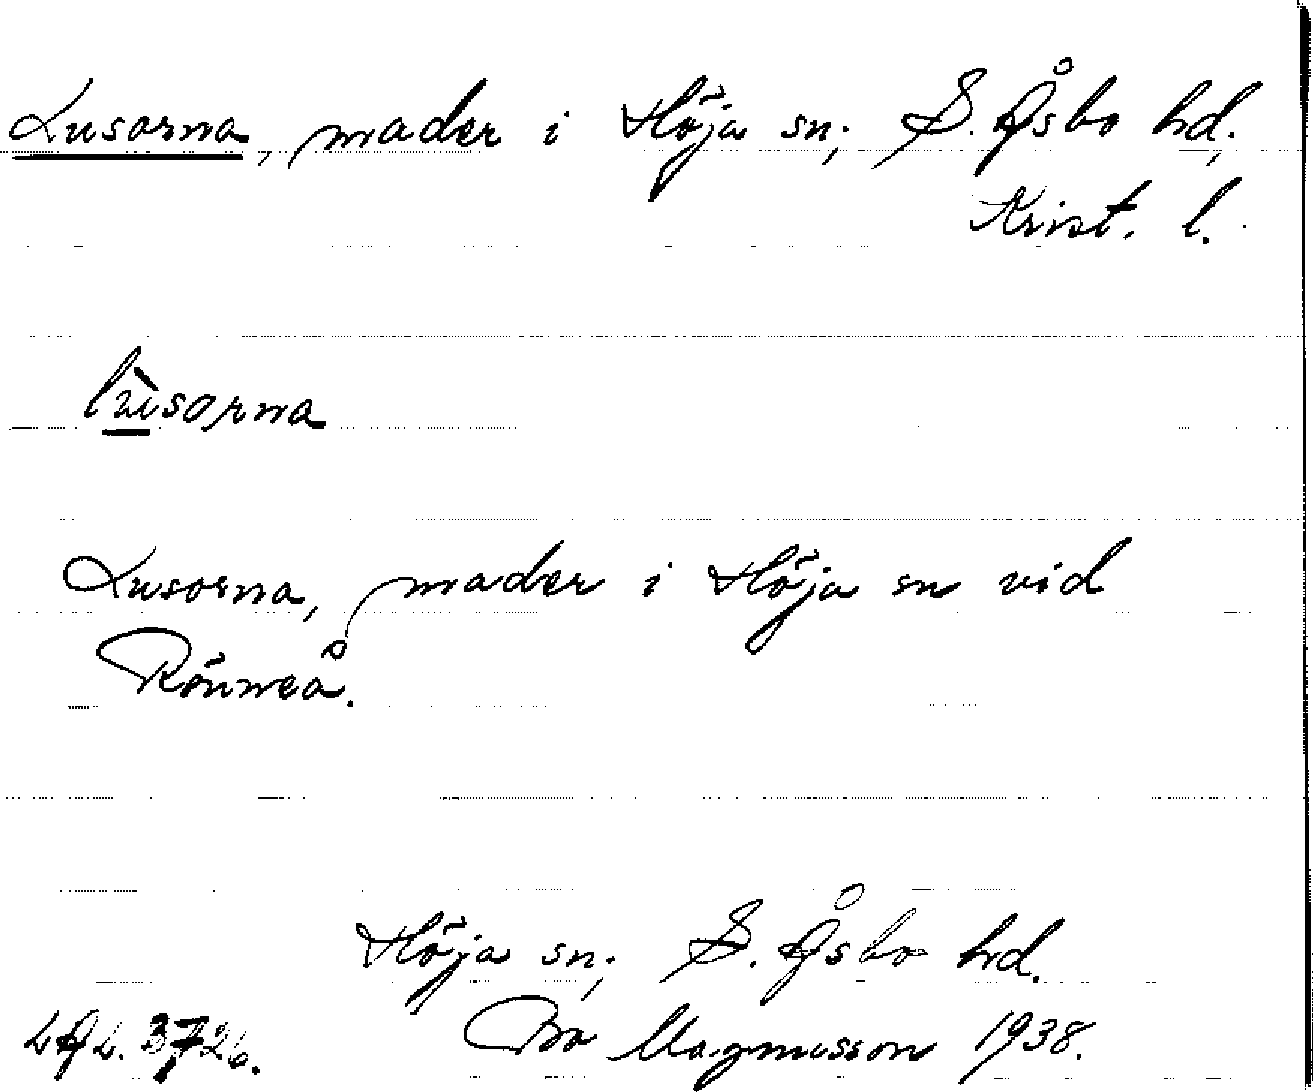 Lusorna, mader i Höja sn, S. Åsbo hd,
Krist. l.
lùsorna
Lusorna, mader i Höja sn vid
Rönneå.
Höja sn, S. Åsbo hd.
LAL. 3726. Bo Magnusson 1938.